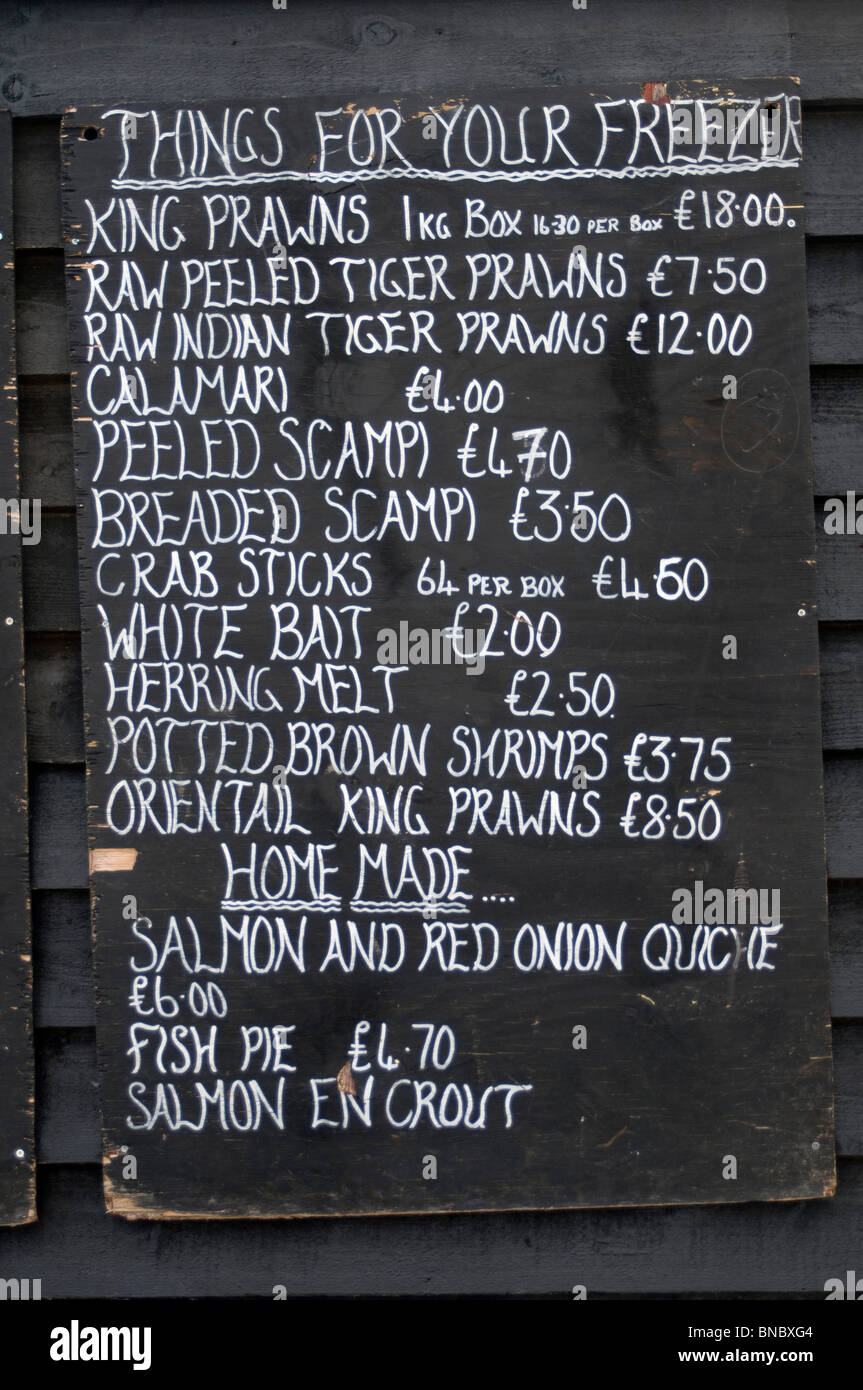 THINGS FOR YOUR FREEZER
KING PRAWNS 1KG BOX 16-30 PER BOX £18.00.
RAW PEELED TIGER PRAWNS £7.50
RAW INDIAN TIGER PRAWNS £12.00
CALAMARI £4.00
PEELED SCAMPI £4.70
BREADED SCAMPI £3.50
CRAB STICKS 64 PER BOX £4.50
WHITE BAIT £2.00
HERRING MELT £2.50.
POTTED BROWN SHRIMPS £3.75
ORIENTAIL KING PRAWNS £8.50
HOME MADE ....
SALMON AND RED ONION QUICHE
£6.00
FISH PIE £4.70
SALMON EN CROUT
alamy
Image ID: BNBXG4
www.alamy.com